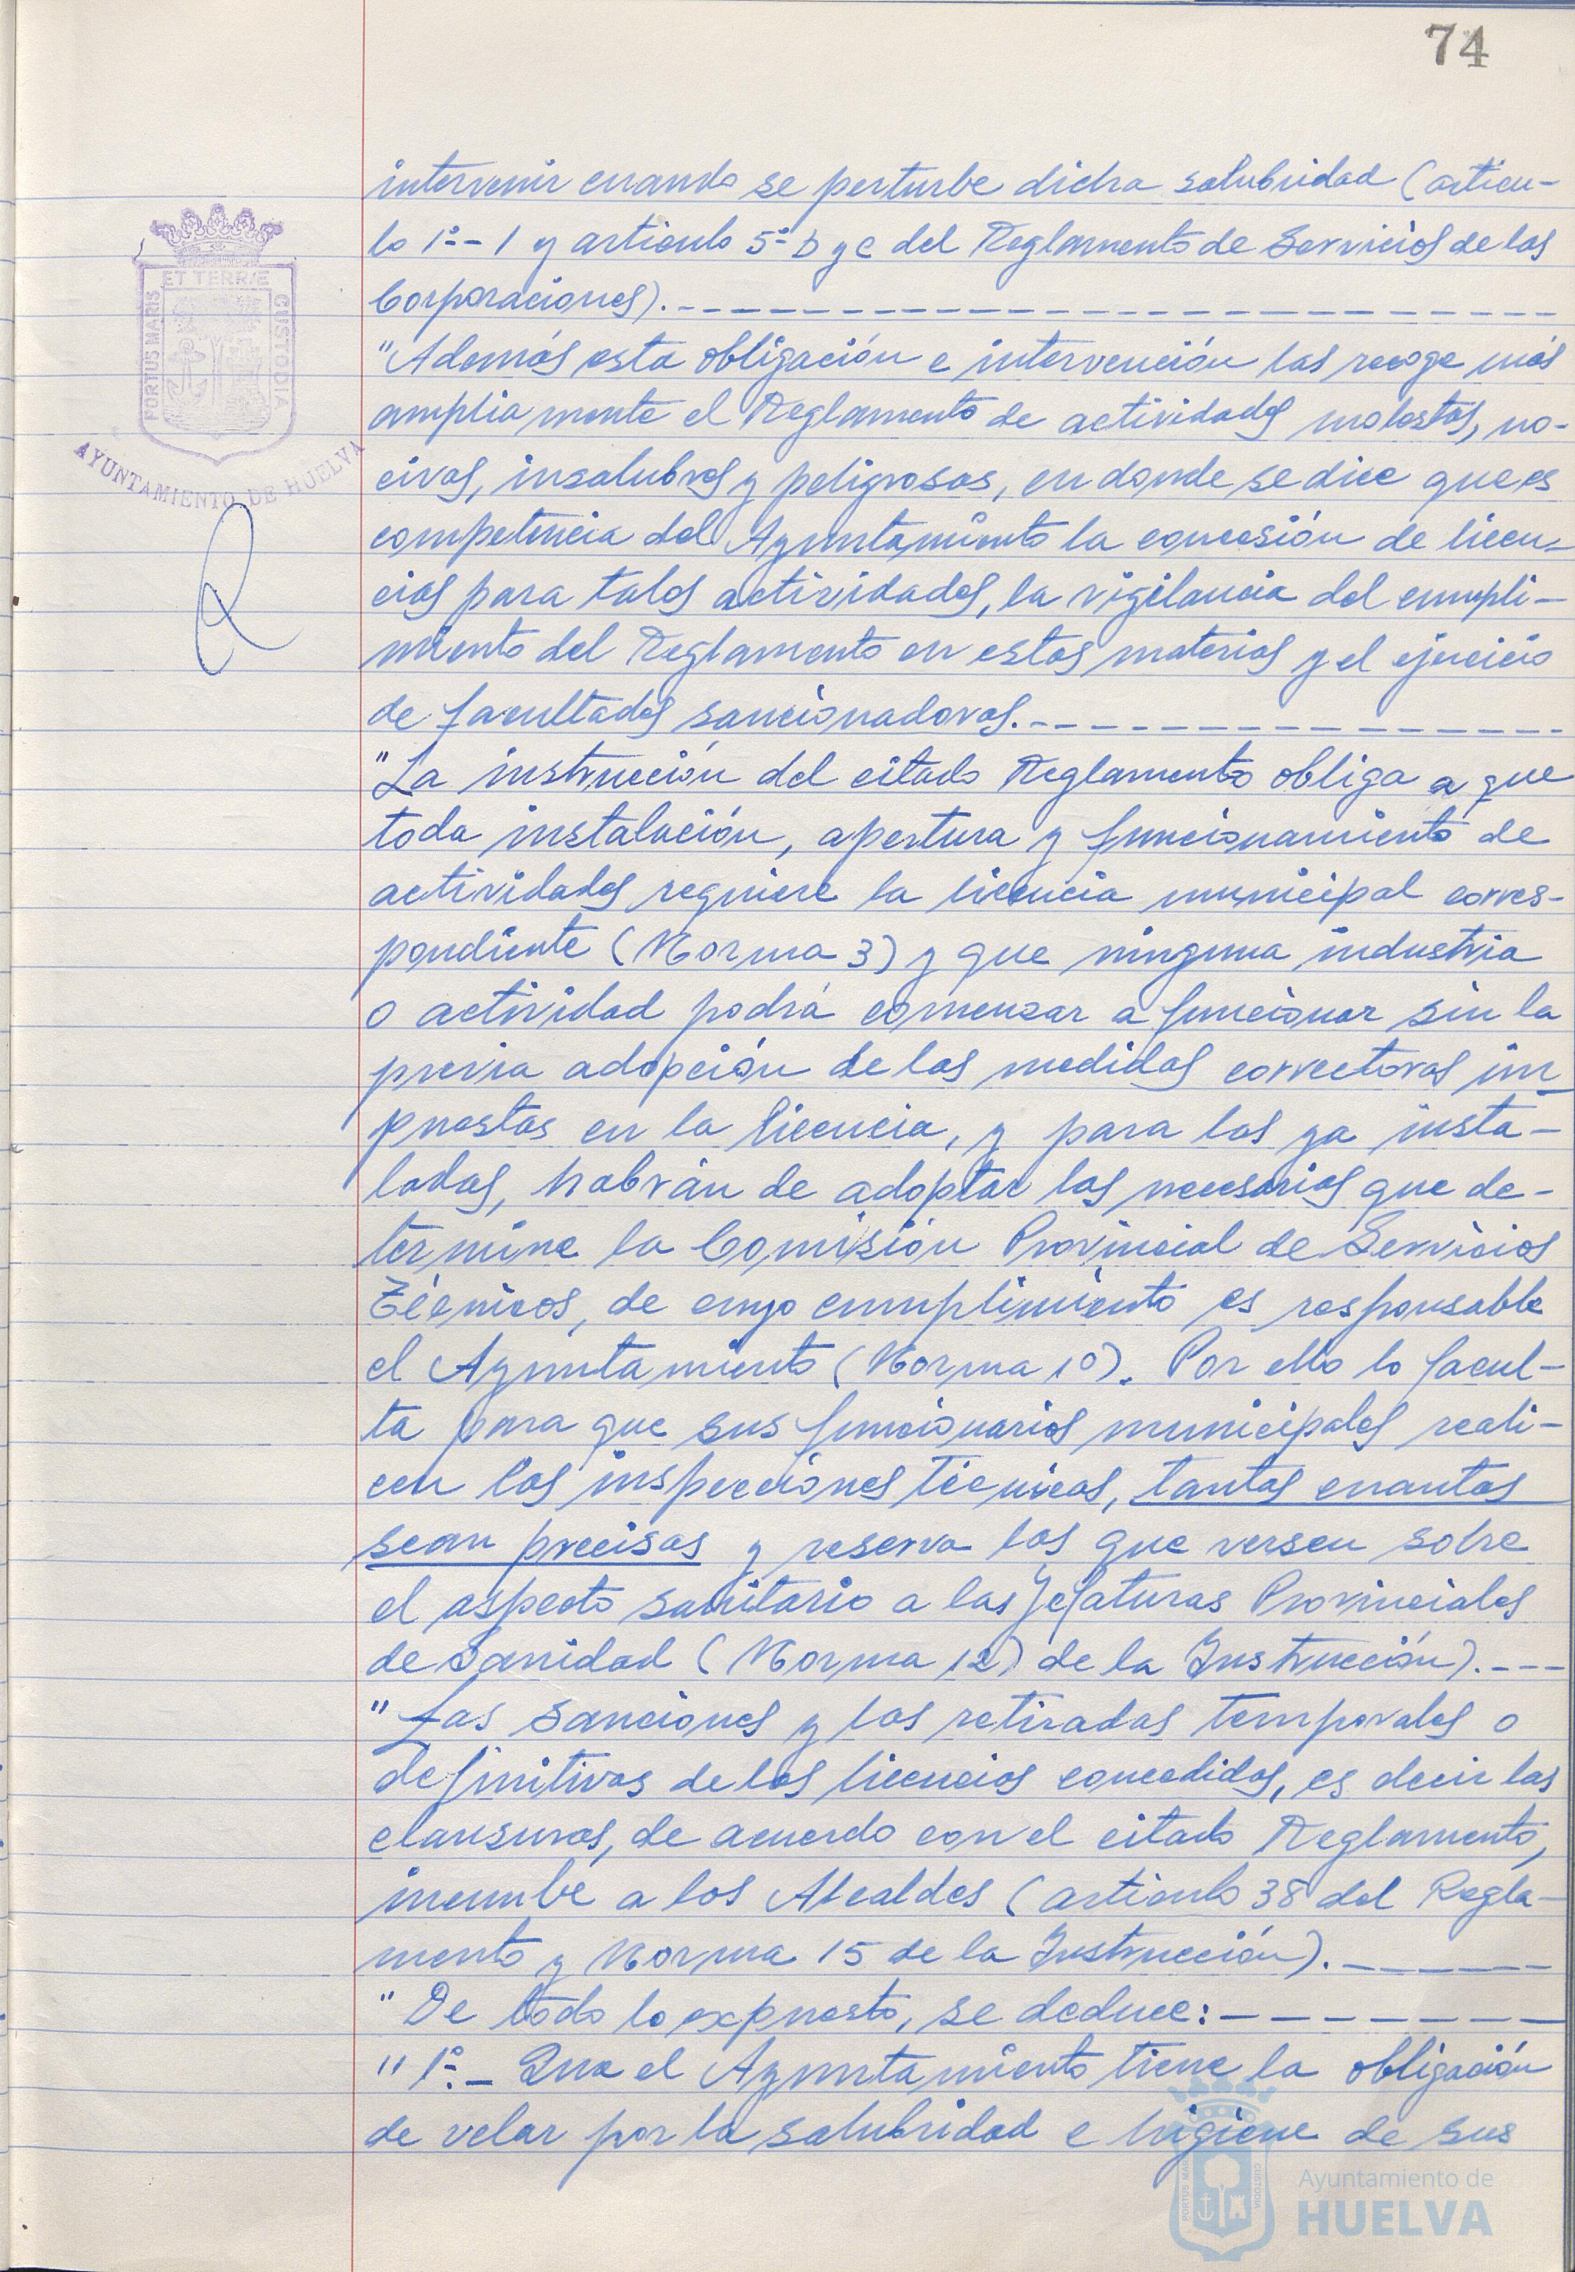 74
intervenir cuando se perturbe dicha salubridad (artícu-
lo 1º-1 y artículo 5º b y c del Reglamento de Servicios de las
Corporaciones).
"Además esta obligación e intervención las recoge más
ampliamente el Reglamento de actividades molestas, no-
civas, insalubres y peligrosas, en donde se dice que es
competencia del Ayuntamiento la concesión de licen-
cias para tales actividades, la vigilancia del cumpli-
miento del Reglamento en estas materias y el ejercicio
de facultades sancionadoras.
"La instrucción del citado Reglamento obliga a que
toda instalación, apertura y funcionamiento de
actividades requiere la licencia municipal corres-
pondiente (Norma 3) y que ninguna industria
o actividad podrá comenzar a funcionar sin la
previa adopción de las medidas correctoras im
puestas en la licencia, y para las ya insta-
ladas, habrán de adoptar las necesarias que de-
termine la Comisión Provincial de Servicios
Técnicos, de cuyo cumplimiento es responsable
el Ayuntamiento (Norma 10). Por ello lo facul-
ta para que sus funcionarios municipales reali-
cen las inspecciones técnicas, tantas cuantas
sean precisas y reserva las que versen sobre
el aspecto sanitario a las Jefaturas Provinciales
de Sanidad (Norma 12) de la Instrucción).---
"Las sanciones y las retiradas temporales o
definitivas de las licencias concedidas, es decir las
clausuras, de acuerdo con el citado Reglamento,
incumbe a los Alcaldes (artículo 38 del Regla-
mento y Norma 15 de la Instrucción).
"De todo lo expuesto, se deduce:
"1º.- Que el Ayuntamiento tiene la obligación
de velar por la salubridad e higiene de sus
PORTUS MARIS
ET TERRÆ
CUSTODIA
AYUNTAMIENTO DE HUELVA
Ayuntamiento de
HUELVA